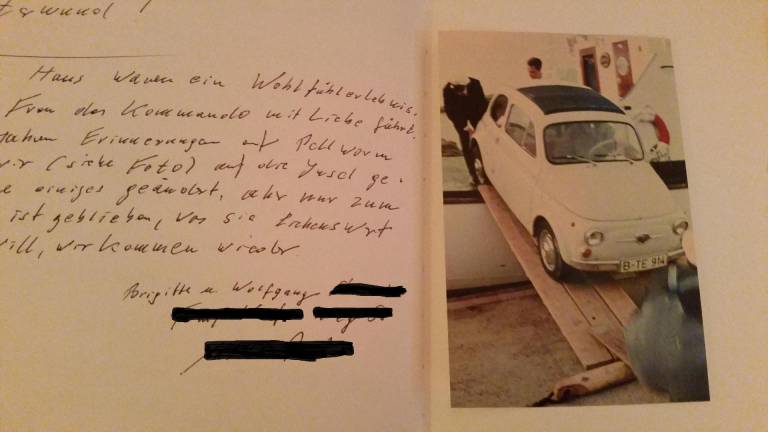 Haus waren ein Wohlfühlerlebnis.
Frau das Kommando mit Liebe führt.
Erinnerungen auf Pellworm
wir (siehe Foto) auf die Insel ge-
einiges geändert, aber nur zum
ist geblieben, was sie liebenswert
will, wir kommen wieder
Brigitte u Wolfgang
B-TE 914